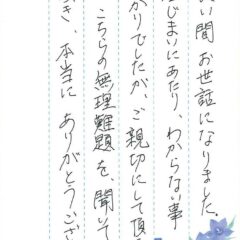 い間お世話になりました。
じまいにあたり、わからない事
かりでしたが、ご親切にして頂
こちらの無理難題を、聞いて
き、本当に ありがとうござ